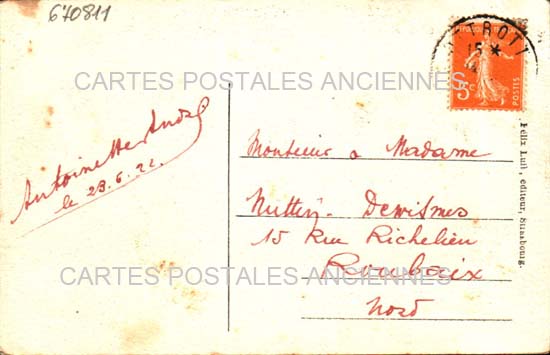 670811
CARTES POSTALES ANCIENNES
TROTT
15 *
5c
POSTES
Antoinette
le 23.6.22.
Monsieur & Madame
Dewismes
15 Rue Richelieu
Roubaix
Nord
CARTES POSTALES ANCIENNES
Félix Luib, éditeur, Strasbourg.